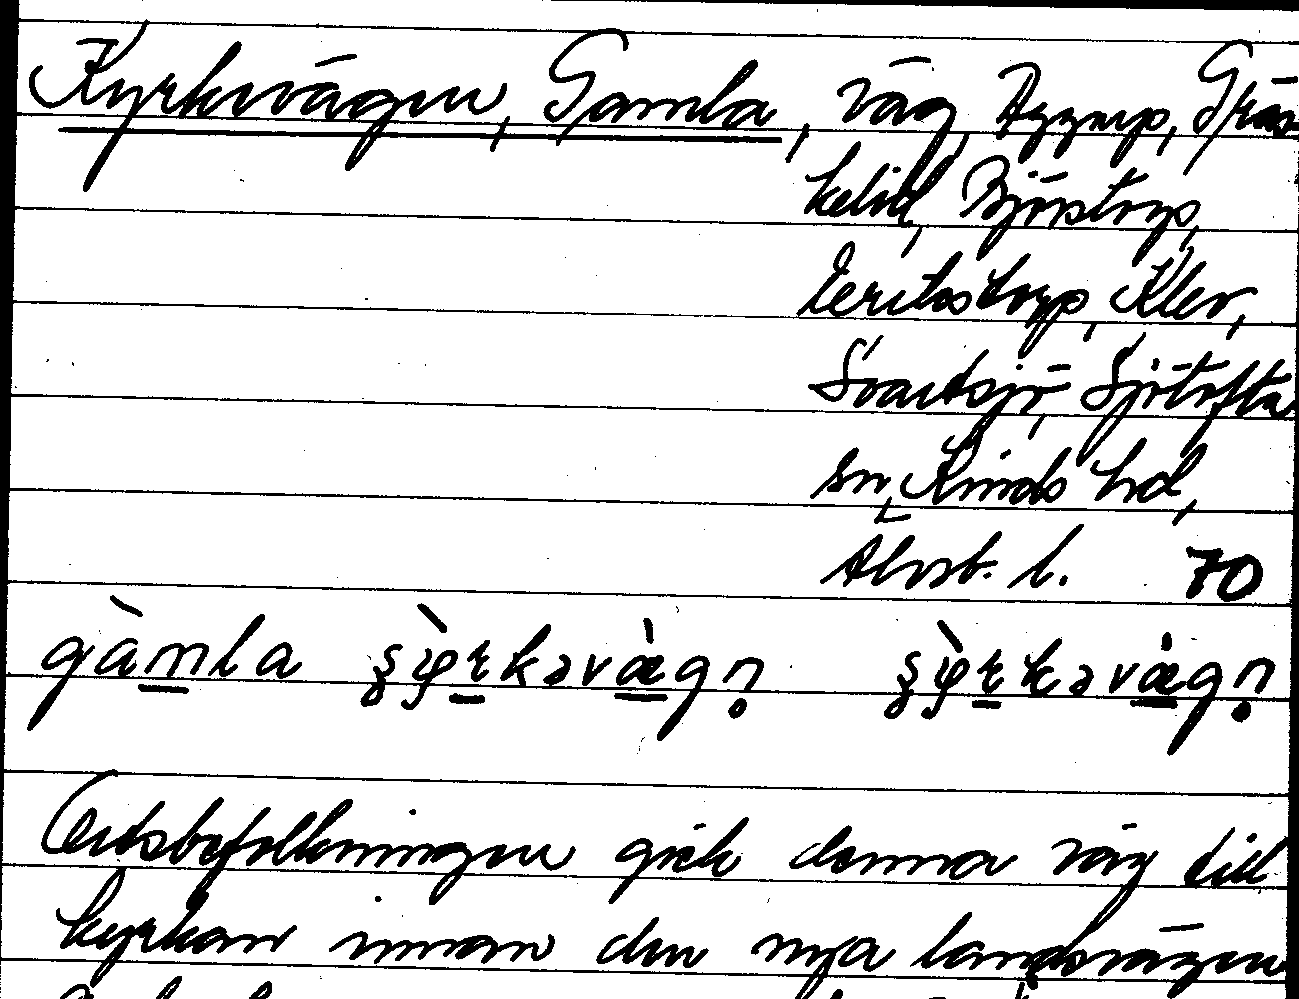 Kyrkvägen, Gamla, väg, Ryggarp, Grän
kelid, Björstorp,
Eerikstorp, Klev,
Svartsjö, Sjötofta
sn, Kinds hd,
Älvsb. l. 70
gàmla
Ortsbefolkningen gick denna väg till
kyrkan innan den nya landsvägen